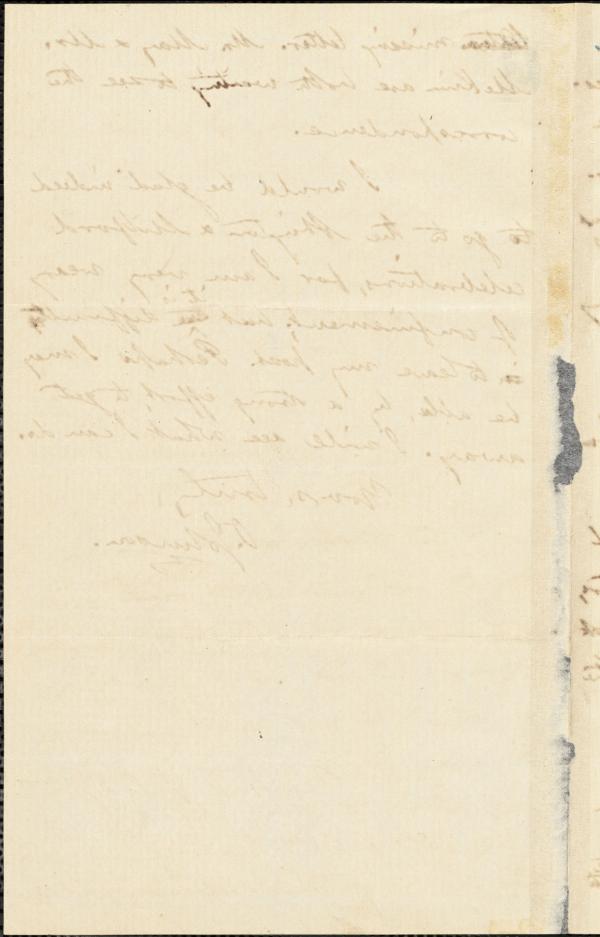 missing letter. Mr. May & Mr.
are both wanting to see the
correspondence.
I would be glad indeed
to go to the Abington & Milford
celebrations, for I am very weary
of confinement; but it is difficult
to leave my post. Perhaps I may
be able, by a strong effort, to get
away. I will see what I can do.
Yours, truly,
O. Johnson.